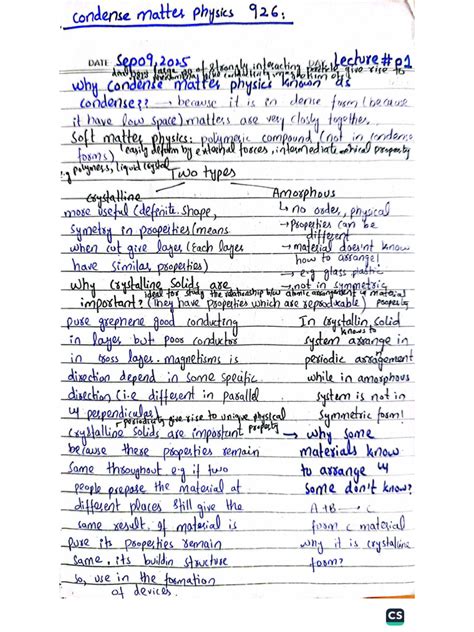 condense matter physics 926:
DATE Sep09,2025 DAY Lecture#01
large no of strongly interacting particle give rise to
why condense matter physics known as
condense?? → because it is in dense form (because
it have low space) matters are very closly together.
Soft matter physics: polymeric compound (not in condense
forms) easily deform by external forces, intermediate
e.g polymers, liquid crystal
Two types
crystalline
more useful (definite shape,
symetry in properties (means
when cut give layers (Each layes
have similar properties)
why crystalline solids are
important? ideal for study the relationship b/w atomic arrangement & material
(they have properties which are reproduable) property
pure graphene good conducting
in layer but poor conductor
in cross layer. magnetisms is
direction depend in some specific
direction (i.e different in parallel
& perpendicular)
periodicity give rise to unique physical
property
Crystalline solids are important
because these properties remain
same throughout e.g if two
people prepose the material at
different places still give the
same result, if material is
pure its properties remain
same, its buildin structure
so, use in the formation
of devices.
Amorphous
↳ no order, physical
→ properties can be
different
→ material doesn't know
how to arrange!
→ e.g glass plastic
→ not in symmetric
In crystallin solid
knows to
system arrange in
periodic arragement
while in amorphous
system is not in
symmetric form!
→ why some
materials know
to arrange &
some don't know?
A+B → C
form C material
why it is crystalline
form?
CS